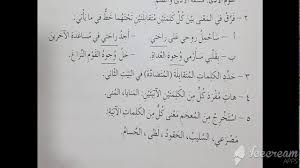 ٢ – فرّق في المعنى بين كلّ كلمتين متقابلتين تحتهما خطّ في ما يأتي:
أ – سأحمل روحي على راحتي – أجد راحتي في مساعدة الآخرين
ب – بقلبي سأرمي وجوه العداة. – حلّ وجوه القوم النّزاع.
٣ – حدّد الكلمات المتقابلة (المتضادّة) في البيت الثاني.
٤ – هات مفرد كلّ كلمة من الكلمتين الآتيتين: المنايا، المنى.
٥ – استخرج من المعجم معنى كلّ كلمة من الكلمات الآتية:
مصرعي، السّليب، الحقود، لظى، الحسام.
Icecream
APPS